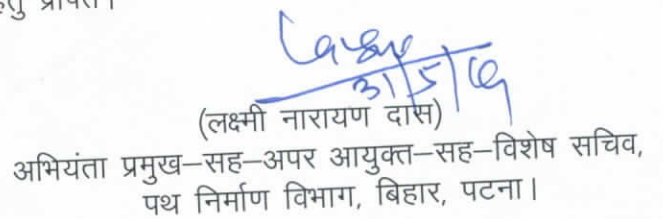 हेतु प्रेषित।
31/5/19
(लक्ष्मी नारायण दास)
अभियंता प्रमुख–सह–अपर आयुक्त–सह–विशेष सचिव,
पथ निर्माण विभाग, बिहार, पटना।